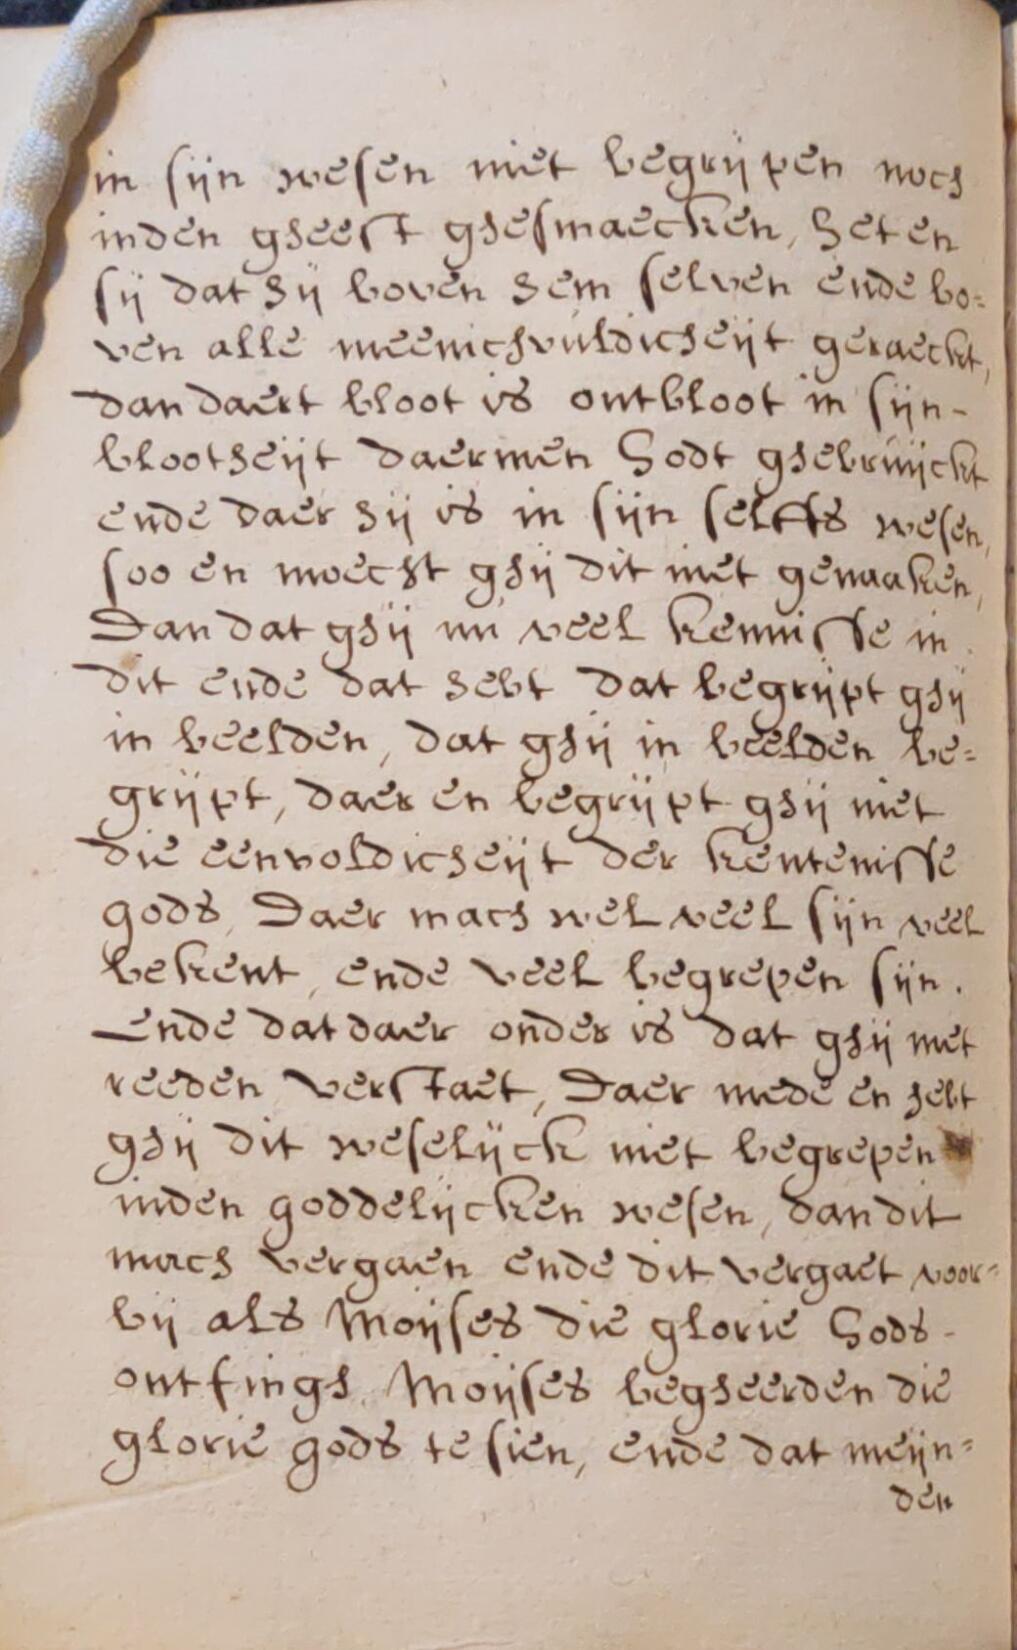 in sijn wesen niet begrijpen noch
inden gheest ghesmaecken, het en
sij dat hij boven hem selven ende bo=
ven alle meenichvuldicheijt geraeckt,
dan daert bloot is ontbloot in sijn-
blootheijt daermen Godt ghebruijckt
ende daer hij is in sijn selffs wesen,
soo en moecht ghij dit niet genaaken,
Dan dat ghij nu veel kennisse in
dit ende dat hebt dat begrijpt ghij
in beelden, dat ghij in beelden be=
grijpt, daer en begrijpt ghij niet
die eenvoldicheijt der kentenisse
gods, Daer mach wel veel sijn veel
bekent, ende veel begrepen sijn.
Ende dat daer onder is dat ghij met
reeden verstaet, Daer mede en hebt
ghij dit weselijck niet begrepen
inden goddelijcken wesen, dan dit
mach vergaen ende dit vergaet voor=
bij als Moijses die glorie Gods-
ontfingh. Moijses begheerden die
glorie gods te sien, ende dat meijn=
den